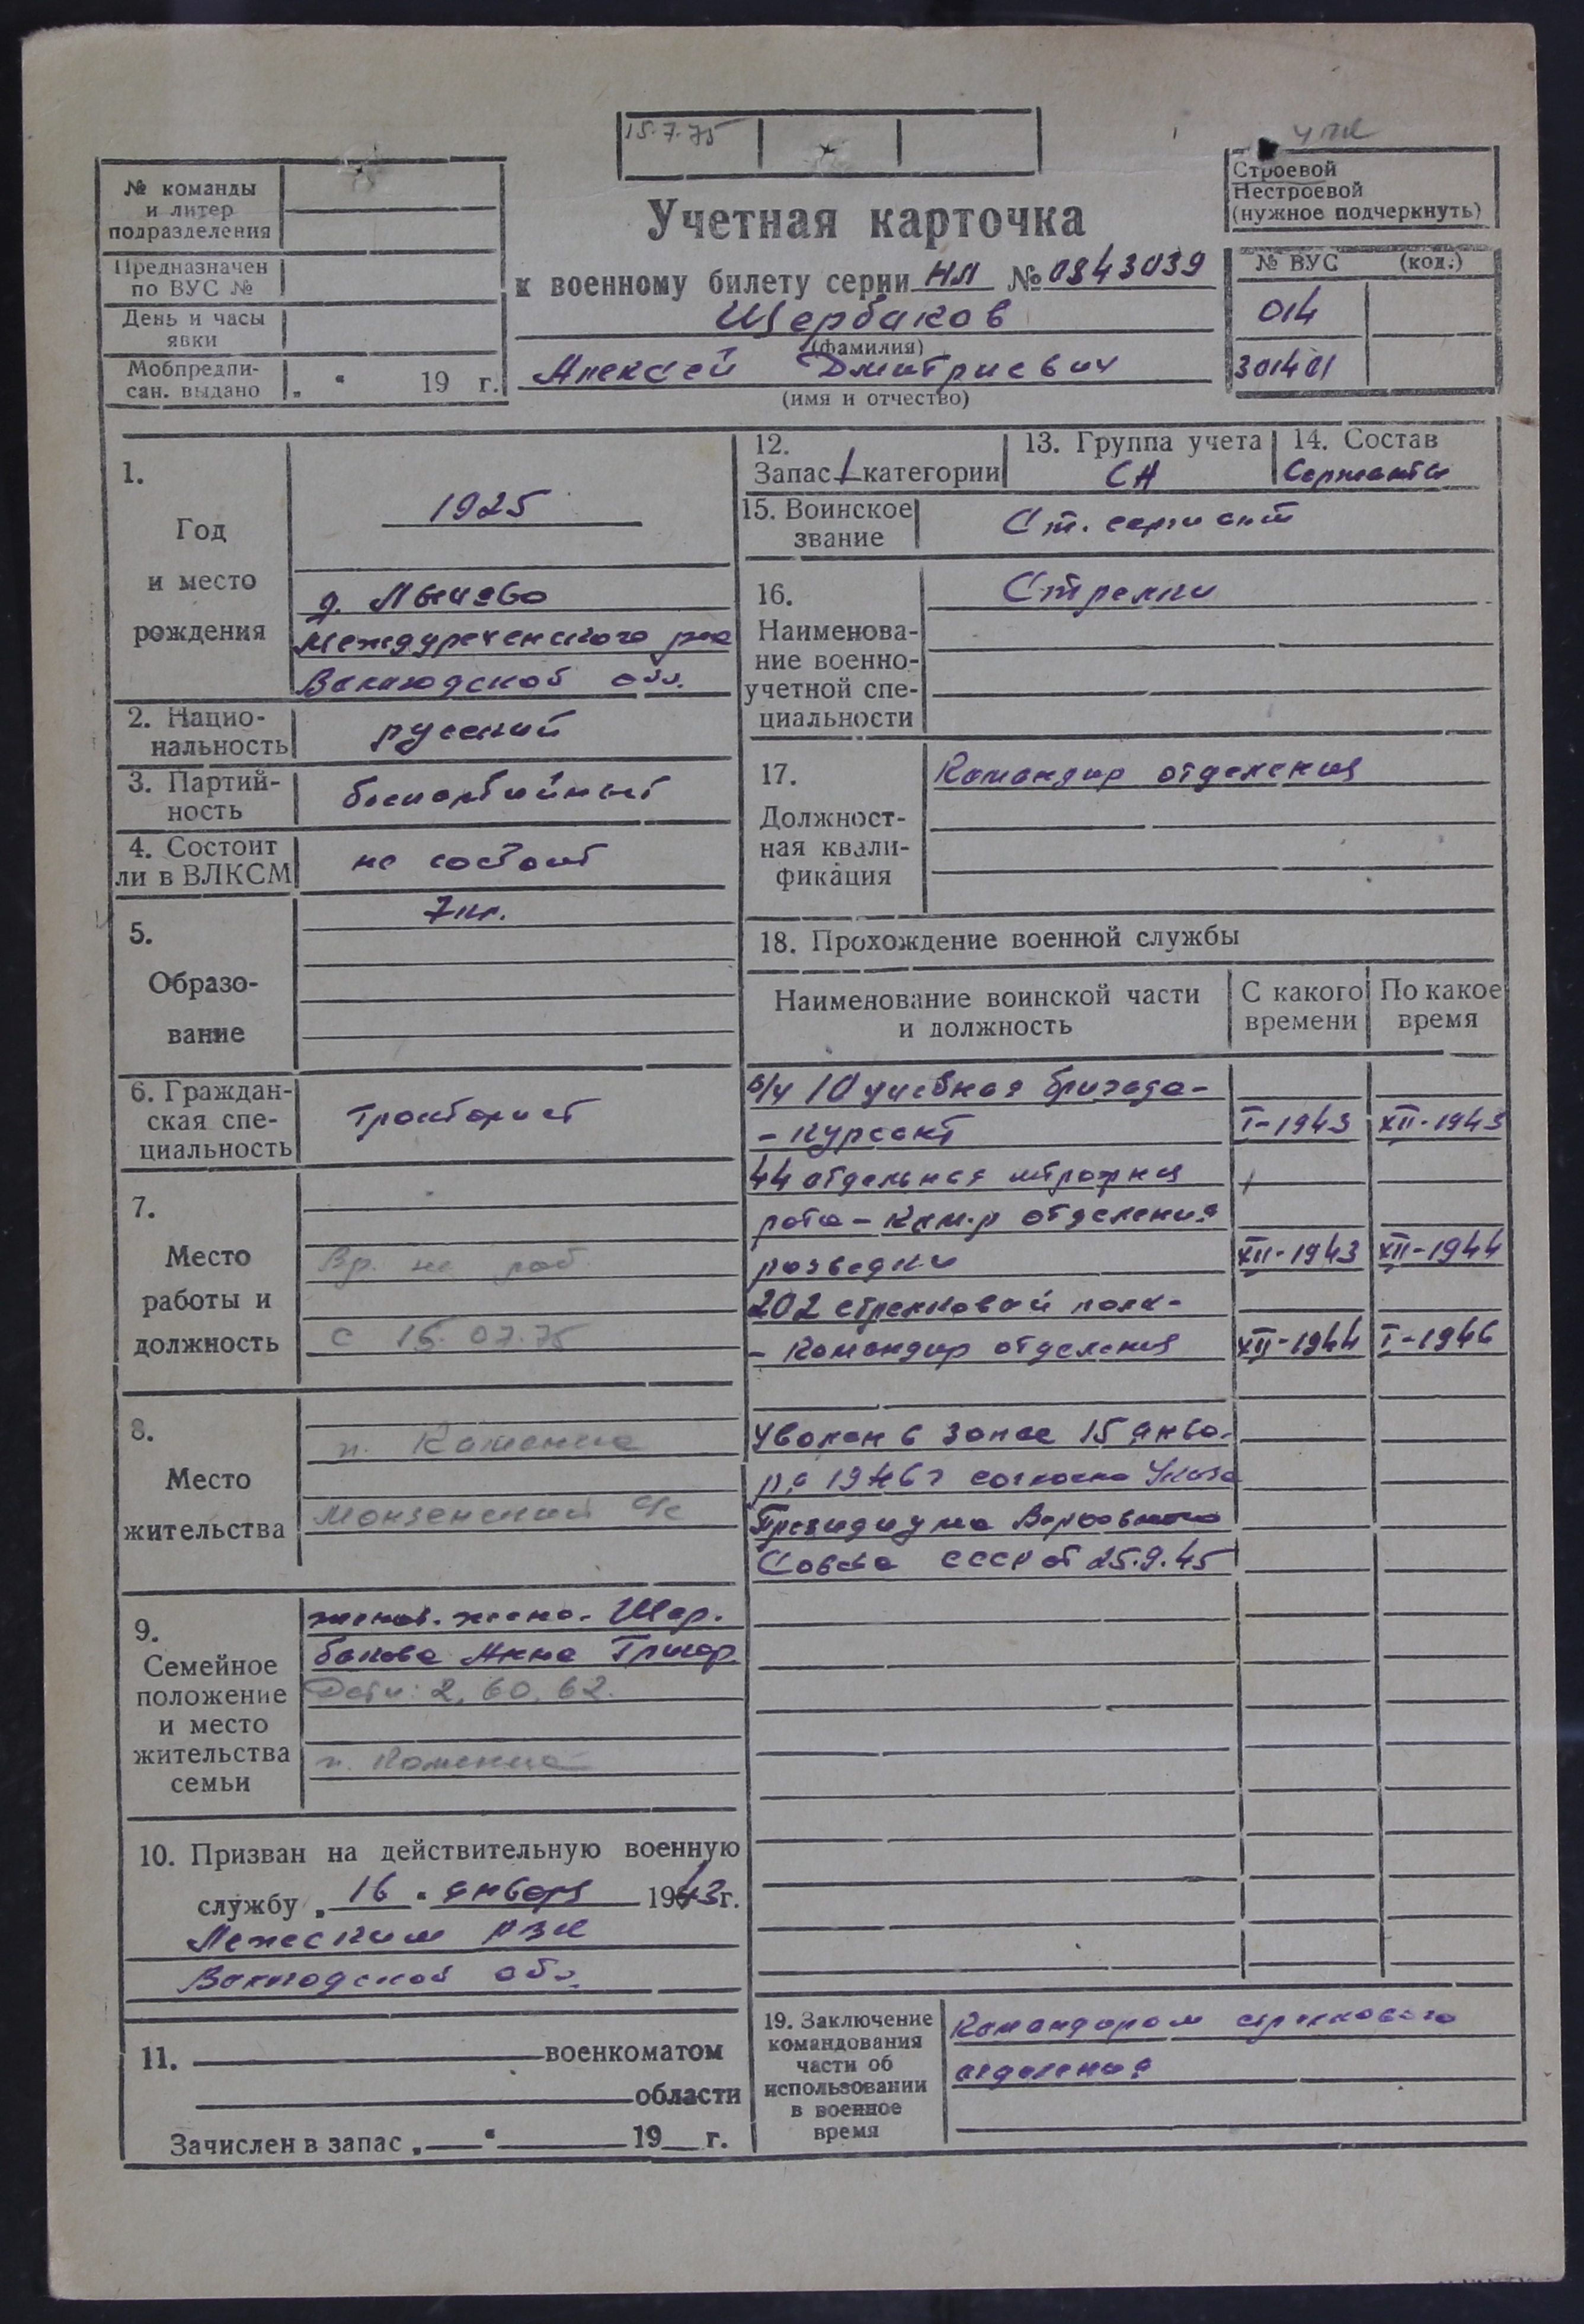 15.7.75
№ команды
и литер
подразделения
Предназначен
по ВУС №
День и часы
явки
Мобпредпи-
сан. выдано „ “ 19 г.
Учетная карточка
к военному билету серии НЛ № 0843039
Щербаков
(фамилия)
Алексей Дмитриевич
(имя и отчество)
Строевой
Нестроевой
(нужное подчеркнуть)
№ ВУС (код.)
014
301401
1.
Год
и место
рождения
1925
д.
Междуреченского р-на
Вологодской обл.
2. Нацио-
нальность
русский
3. Партий-
ность
беспартийный
4. Состоит
ли в ВЛКСМ
не состоит
5.
Образо-
вание
7 кл.
6. Граждан-
ская спе-
циальность
Тракторист
7.
Место
работы и
должность
Вр. не раб.
с 15.07.75
8.
Место
жительства
п. Каменка
Монзенский с/с
9.
Семейное
положение
и место
жительства
семьи
женат. жена. Щер-
бакова Анна Григор
Дети: 2, 60, 62.
п. Каменка
10. Призван на действительную военную
службу „16“ января 1943 г.
Лежским РВК
Вологодской обл.
11. военкоматом
области
Зачислен в запас „ “ 19 г.
12.
Запас 1 категории
13. Группа учета
СА
14. Состав
Сержанты
15. Воинское
звание
Ст. сержант
16.
Наименова-
ние военно-
учетной спе-
циальности
Стрелки
17.
Должност-
ная квали-
фикация
Командир отделения
18. Прохождение военной службы
Наименование воинской части
и должность
С какого
времени
По какое
время
в/ч 10 учебная бригада-
- курсант I-1943 XII-1943
44 отдельная штрафная
рота - ком-р отделения
разведки XII-1943 XII-1944
202 стрелковый полк-
- Командир отделения XII-1944 I-1946
Уволен в запас 15 янва-
ря 1946 г согласно Указа
Президиума Верховного
Совета СССР от 25.9.45
19. Заключение
командования
части об
использовании
в военное
время
Командиром стрелкового
отделения